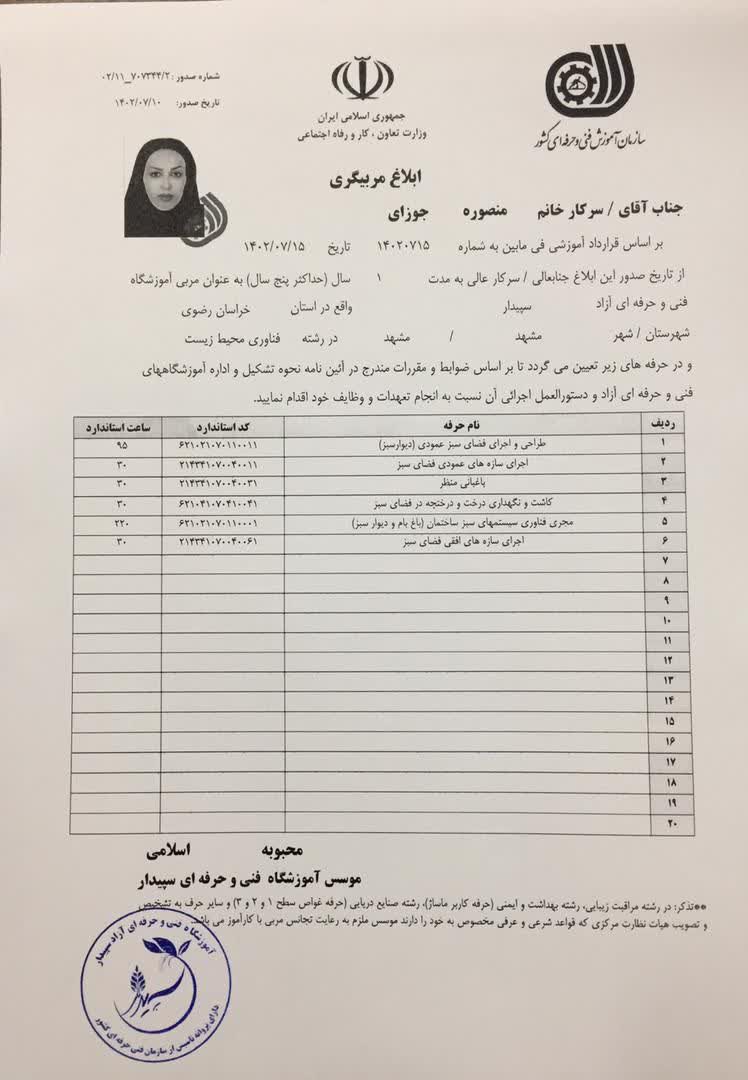 سازمان آموزش فنی و حرفه ای کشور
جمهوری اسلامی ایران
وزارت تعاون ، کار و رفاه اجتماعی
شماره صدور : ۰۲/۱۱_۷۰۷۳۴۴/۲
تاریخ صدور: ۱۴۰۲/۰۷/۱۰
ابلاغ مربیگری
جناب آقای / سرکار خانم منصوره جوزای
بر اساس قرارداد آموزشی فی مابین به شماره ۱۴۰۲۰۷۱۵ تاریخ ۱۴۰۲/۰۷/۱۵
از تاریخ صدور این ابلاغ جنابعالی / سرکار عالی به مدت ۱ سال (حداکثر پنج سال) به عنوان مربی آموزشگاه
فنی و حرفه ای آزاد سپیدار واقع در استان خراسان رضوی
شهرستان / شهر مشهد / مشهد در رشته فناوری محیط زیست
و در حرفه های زیر تعیین می گردد تا بر اساس ضوابط و مقررات مندرج در آئین نامه نحوه تشکیل و اداره آموزشگاههای
فنی و حرفه ای آزاد و دستورالعمل اجرائی آن نسبت به انجام تعهدات و وظایف خود اقدام نمایید.
ردیف نام حرفه کد استاندارد ساعت استاندارد
۱ طراحی و اجرای فضای سبز عمودی (دیوارسبز) ۶۲۱۰۲۱۰۷۰۱۱۰۰۱۱ ۹۵
۲ اجرای سازه های عمودی فضای سبز ۲۱۴۳۴۱۰۷۰۰۴۰۰۱۱ ۳۰
۳ باغبانی منظر ۲۱۴۳۴۱۰۷۰۰۴۰۰۳۱ ۳۰
۴ کاشت و نگهداری درخت و درختچه در فضای سبز ۶۲۱۰۴۱۰۷۰۴۱۰۰۴۱ ۳۰
۵ مجری فناوری سیستمهای سبز ساختمان (باغ بام و دیوار سبز) ۶۲۱۰۲۱۰۷۰۱۱۰۰۰۱ ۲۲۰
۶ اجرای سازه های افقی فضای سبز ۲۱۴۳۴۱۰۷۰۰۴۰۰۶۱ ۳۰
۷
۸
۹
۱۰
۱۱
۱۲
۱۳
۱۴
۱۵
۱۶
۱۷
۱۸
۱۹
۲۰
محبوبه اسلامی
موسس آموزشگاه فنی و حرفه ای سپیدار
**تذکر: در رشته مراقبت زیبایی، رشته بهداشت و ایمنی (حرفه کاربر ماساژ)، رشته صنایع دریایی (حرفه غواص سطح ۱ و ۲ و ۳) و سایر حرف به تشخیص
و تصویب هیات نظارت مرکزی که قواعد شرعی و عرفی مخصوص به خود را دارند موسس ملزم به رعایت تجانس مربی با کارآموز می باشد.
آموزشگاه فنی و حرفه ای آزاد سپیدار
سپیدار
دارای پروانه تاسیس از سازمان فنی حرفه ای کشور